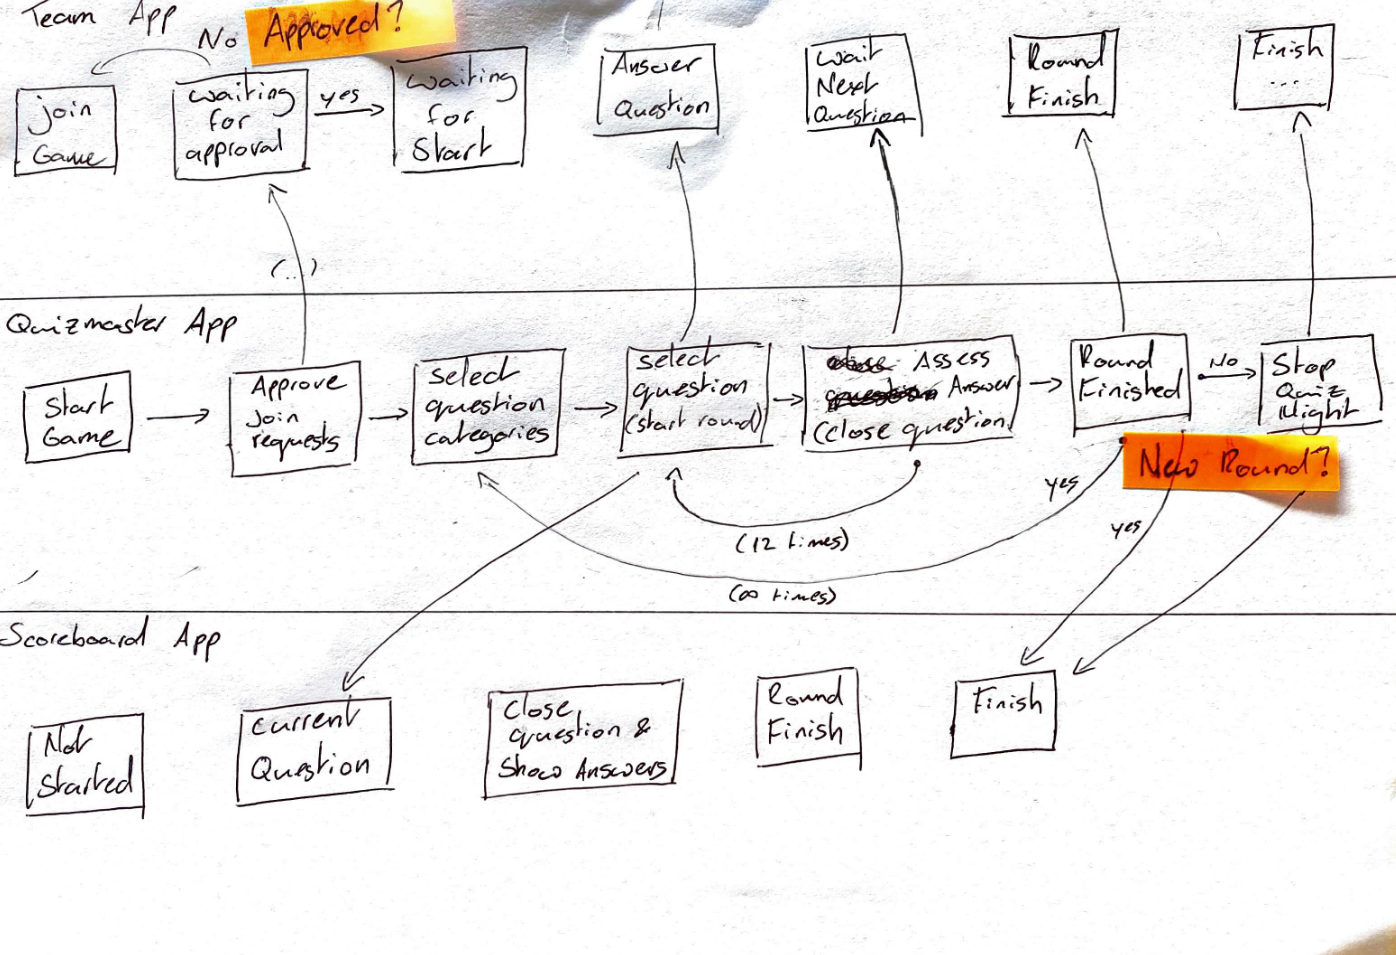 Team App
No
Approved?
join
Game
waiting
for
approval
yes
waiting
for
Start
Answer
Question
wait
Next
Question
Round
Finish
Finish
....
(...)
Quizmaster App
Start
Game
Approve
Join
requests
select
question
categories
select
question
(start round)
close Assess
question Answer
(close question)
Round
Finished
No
Stop
Quiz
Night
New Round?
yes
yes
(12 times)
(∞ times)
Scoreboard App
Not
Started
Current
Question
Close
question &
Show Answers
Round
Finish
Finish